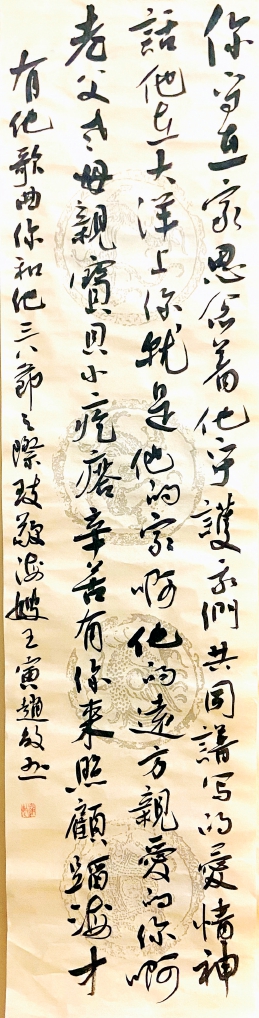 你守在家思念着他守護我們共同譜写的愛情神
話他在大洋上你就是他的家啊他的遠方親愛的你啊
老父老母親寶貝小疙瘩辛苦有你来照顧蹈海才
有他歌曲你和他三八節之際致敬海嫂壬寅趙